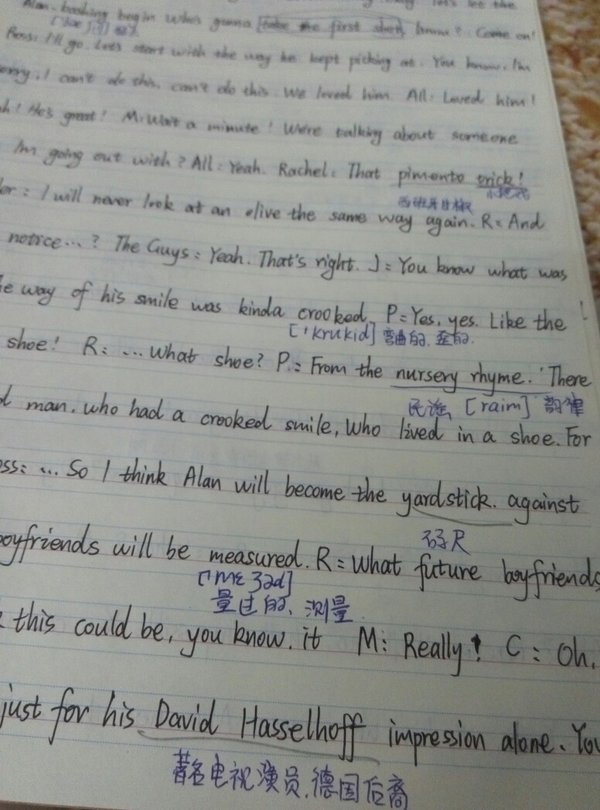 let's let the
Alan-bashing begin who's gonna take the first shot, hmm? Come on!
Ross: I'll go. Let's start with the way he kept picking at. You know, I'm
sorry, I can't do this, can't do this. We loved him. All: Loved him!
He's great! M: Wait a minute! We're talking about someone
I'm going out with? All: Yeah. Rachel: That pimento trick!
西班牙甘椒
I will never look at an olive the same way again. R: And
notice...? The Guys: Yeah. That's right. J: You know what was
way of his smile was kinda crooked. P: Yes, yes. Like the
['krukid] 弯曲的, 歪的.
shoe! R: ... What shoe? P: From the nursery rhyme. 'There
民谣 [raim] 韵律
man, who had a crooked smile, who lived in a shoe. For
... So I think Alan will become the yardstick against
码尺
boyfriends will be measured. R: What future boyfriends
['mɛʒəd]
量过的、测量
this could be, you know, it M: Really! C: Oh,
just for his David Hasselhoff impression alone. You
著名电视演员, 德国后裔